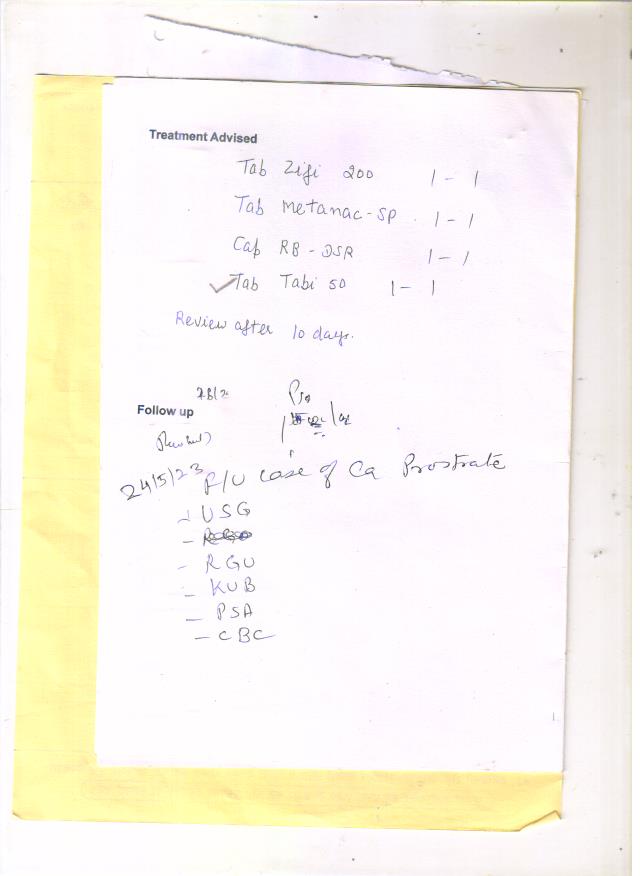 Treatment Advised
Tab Zifi 200 1 - 1
Tab Metanac-SP. 1 - 1
Cap RB-DSR 1 - 1
Tab Tabi 50 1 - 1
Review after 10 days.
Follow up
24/5/23 F/U case of Ca Prostrate
- USG
- RGU
- KUB
- PSA
- CBC